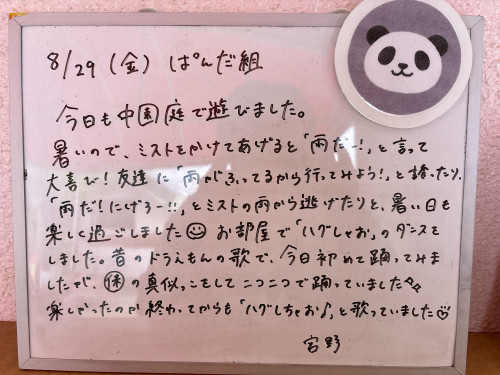 8/29 (金) ぱんだ組
今日も中園庭で遊びました。
暑いので、ミストをかけてあげると「雨だー!」と言って
大喜び!友達に「雨がふってるから行ってみよう!」と誘ったり、
「雨だ!にげろー!!」とミストの雨から逃げたりと、暑い日も
楽しく過ごしました☺ お部屋で「ハグしちゃお」のダンスを
しました。昔のドラえもんの歌で、今日初めて踊ってみま
したが、㋭の真似っこをしてニコニコで踊っていました♪
楽しかったのか終わってからも「ハグしちゃお♪」と歌っていました☺
宮野